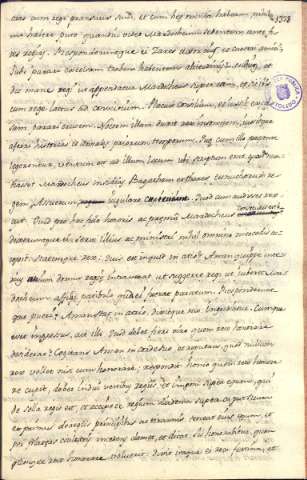 cras cum rege pransurus sum. et cum hec omnia habeam, nihil
me habere puto quamdiu videro Mardocheum sedentem ante fo-
res regias. Responderuntque ei Zares uxor eius et ceteri amici.
Iube parari excelsam trabem habentem altitudinis
et dic mane regi ut appendatur Mardocheus super eam, et sic ibis
cum rege laetus ad convivium. Placuit consilium, et iussit excel-
sam parari crucem. Noctem illam duxit rex insomnem, iussitque
afferri historias et annales priorum temporum. Quae cum illo praesente
legerentur, ventum est ad illum locum ubi scriptum erat quomodo
Mardocheus insidias Bagathan et Thares eunuchorum re-
gem Assuerum iugulare cupientium. Quod cum audisset rex
ait. Quid pro hac fide honoris ac praemii Mardocheus consecutus
dixeruntque ei servi illius ac ministri nihil omnino mercedis ac-
cepit. Statimque rex. Quis est inquit in atrio? Aman quippe inte-
rius atrium domus regiae intraverat ut suggereret regi ut iuberet Mar-
docheum affigi patibulo quod ei fuerat paratum. Responderunt
pueri? Aman stat in atrio. Dixitque rex ingrediatur. Cumque
esset ingressus, ait illi. Quid debet fieri viro quem rex honorare
desiderat? Cogitans Aman in corde suo et reputans quod nullum
rex vellet nisi eum honorare, respondit homo quem rex honorare
cupit, debet indui vestibus regiis, et imponi super equum, qui
de sella regis est, et accipere regium diadema super caput suum
et primus de regiis principibus ac tyrannis teneat eius equum, et
per plateas civitatis incedens clamet, et dicat. Sic honorabitur, quem-
cumque rex honorare voluerit. Dixit itaque ei rex festina, et